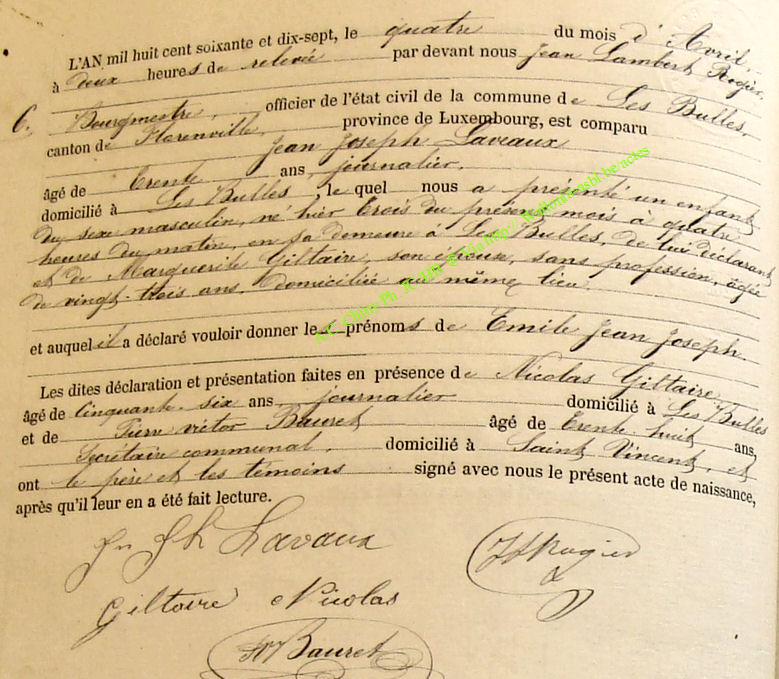 L'AN mil huit cent soixante et dix-sept, le quatre du mois d'Avril
à deux heures de relevée par devant nous Jean Lambert Rogier,
6. Bourgmestre, officier de l'état civil de la commune de Les Bulles,
canton de Florenville, province de Luxembourg, est comparu
Jean Joseph Lavaux
âgé de trente ans, journalier,
domicilié à Les Bulles, le quel nous a présenté un enfant
du sexe masculin, né hier trois du présent mois à quatre
heures du matin, en sa demeure à Les Bulles, de lui déclarant
et de Marguerite Giltaire, son épouse, sans profession, âgée
de vingt-trois ans, domiciliée au même lieu
et auquel il a déclaré vouloir donner les prénoms de Emile Jean Joseph.
Les dites déclaration et présentation faites en présence de Nicolas Giltaire,
âgé de cinquante six ans, journalier domicilié à Les Bulles
et de Pierre victor Bauret âgé de trente huit ans,
Secrétaire communal, domicilié à Saint Vincent, et
ont le père et les témoins signé avec nous le présent acte de naissance,
après qu'il leur en a été fait lecture.
Jn Jh Lavaux
Rogier
Giltaire Nicolas
Bauret